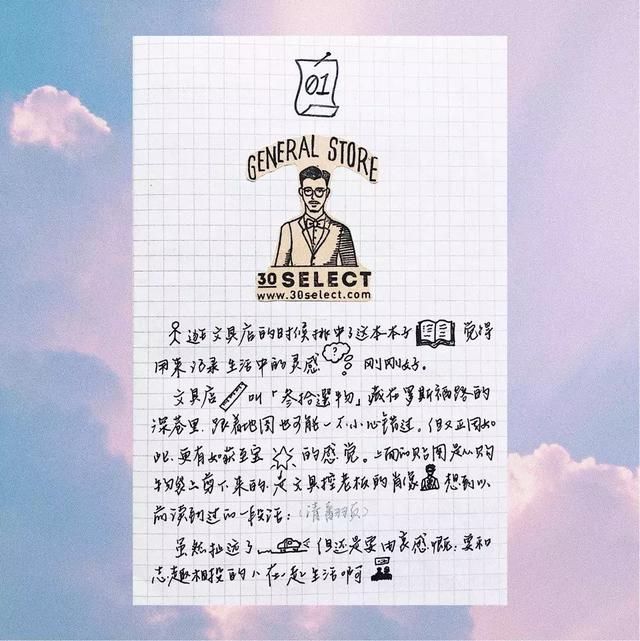 01
GENERAL STORE
30 SELECT
www.30select.com
逛文具店的时候挑中了这本本子 觉得
用来记录生活中的灵感 ? 刚刚好。
文具店 叫「参拾選物」藏在罗斯福路的
深巷里，跟着地图也可能一不小心错过，但又正因如
此，更有如获至宝 的感觉。上面的贴图是从购
物袋上剪下来的，是文具控老板的肖像 想到以
前读到过的一段话：（请翻页）
虽然扯远了 但还是要由衷感慨：要和
志趣相投的人在一起生活啊